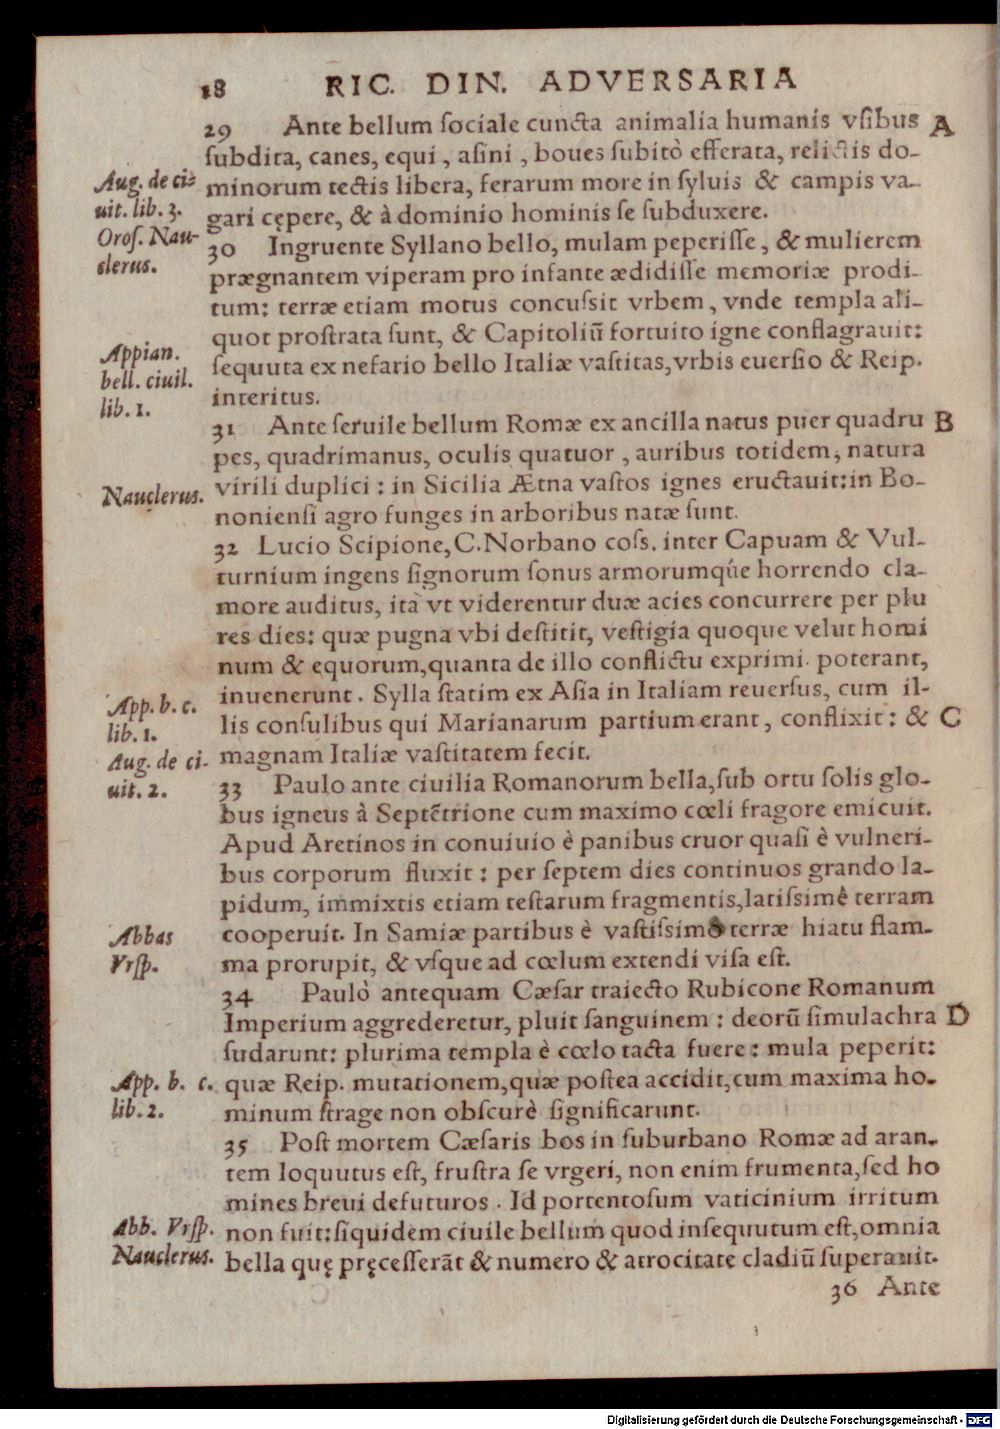 18 RIC. DIN. ADVERSARIA
29 Ante bellum sociale cuncta animalia humanis vsibus A
subdita, canes, equi, asini, boues subitò efferata, relictis do-
Aug. de ci-
minorum tectis libera, ferarum more in syluis & campis va-
uit. lib. 3.
gari cępere, & à dominio hominis se subduxere.
Oros. Nau-
clerus.
30 Ingruente Syllano bello, mulam peperisse, & mulierem
prægnantem viperam pro infante ædidisse memoriæ prodi-
tum: terræ etiam motus concussit vrbem, vnde templa ali-
quot prostrata sunt, & Capitoliū fortuito igne conflagrauit:
Appian.
bell. ciuil.
lib. 1.
sequuta ex nefario bello Italiæ vastitas, vrbis euersio & Reip.
interitus.
31 Ante seruile bellum Romæ ex ancilla natus puer quadru B
pes, quadrimanus, oculis quatuor, auribus totidem, natura
Nauclerus.
virili duplici: in Sicilia Ætna vastos ignes eructauit: in Bo-
noniensi agro funges in arboribus natæ sunt.
32 Lucio Scipione, C. Norbano coss. inter Capuam & Vul-
turnium ingens signorum sonus armorumq́ue horrendo cla-
more auditus, ita vt viderentur duæ acies concurrere per plu
res dies: quæ pugna vbi destitit, vestigia quoque velut homi
num & equorum, quanta de illo conflictu exprimi poterant,
App. b. c.
lib. 1.
inuenerunt. Sylla statim ex Asia in Italiam reuersus, cum il-
lis consulibus qui Marianarum partium erant, conflixit: & C
Aug. de ci-
uit. 2.
magnam Italiæ vastitatem fecit.
33 Paulo ante ciuilia Romanorum bella, sub ortu solis glo-
bus igneus à Septētrione cum maximo cœli fragore emicuit.
Apud Aretinos in conuiuio è panibus cruor quasi è vulneri-
bus corporum fluxit: per septem dies continuos grando la-
pidum, immixtis etiam testarum fragmentis, latissimè terram
Abbas
Vrsp.
cooperuit. In Samiæ partibus è vastissimo terræ hiatu flam-
ma prorupit, & vsque ad cœlum extendi visa est.
34 Paulò antequam Cæsar traiecto Rubicone Romanum
Imperium aggrederetur, pluit sanguinem: deorū simulachra D
sudarunt: plurima templa è cœlo tacta fuere: mula peperit:
App. b. c.
lib. 2.
quæ Reip. mutationem, quæ postea accidit, cum maxima ho-
minum strage non obscurè significarunt.
35 Post mortem Cæsaris bos in suburbano Romæ ad aran-
tem loquutus est, frustra se vrgeri, non enim frumenta, sed ho
mines breui defuturos. Id portentosum vaticinium irritum
Abb. Vrsp.
Nauclerus.
non fuit: siquidem ciuile bellum quod insequutum est, omnia
bella quę pręcesserāt & numero & atrocitate cladiū superauit.
36 Ante
Digitalisierung gefördert durch die Deutsche Forschungsgemeinschaft - DFG